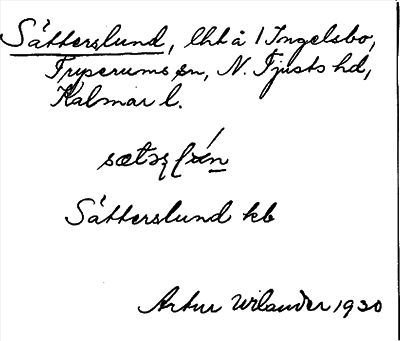 Såtterslund, lht å 1 Ingelsbo,
Tryserums sn, N. Tjusts hd,
Kalmar l.
Såtterslund kb
Artur Wilander 1930